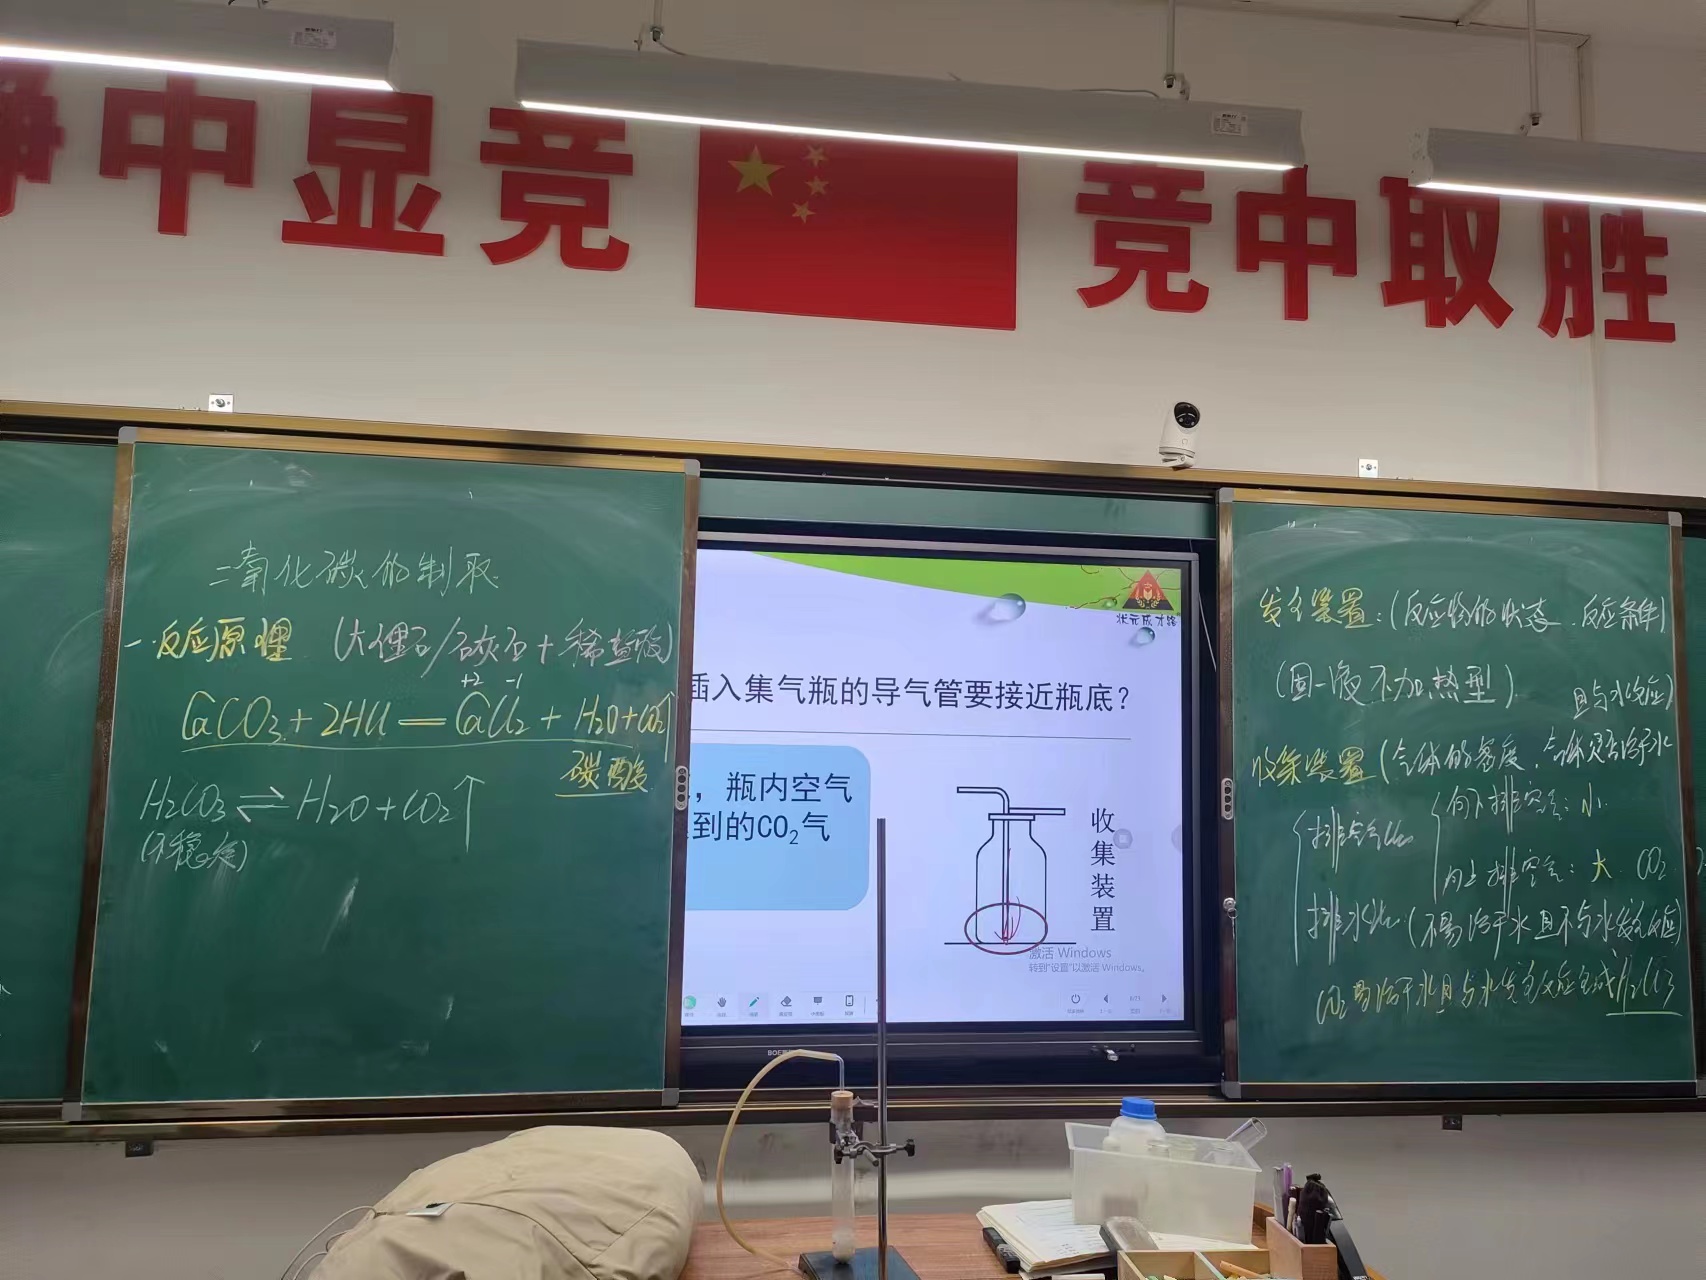 静中显竞 竞中取胜
二氧化碳的制取
一.反应原理 (大理石/石灰石+稀盐酸)
+2 -1
CaCO3+2HCl=CaCl2+H2O+CO2↑
碳酸
H2CO3⇌H2O+CO2↑
(不稳定)
状元成才路
插入集气瓶的导气管要接近瓶底?
,瓶内空气
到的CO2气
收集装置
激活 Windows
转到"设置"以激活 Windows。
BOE
发生装置:(反应物的状态.反应条件)
(固-液不加热型)
且与水反应)
收集装置(气体的密度,气体是否溶于水
排空气法
向下排空气:小.
向上排空气:大.CO2
排水法:(不易溶于水且不与水发生反应)
CO2易溶于水且与水发生反应生成H2CO3